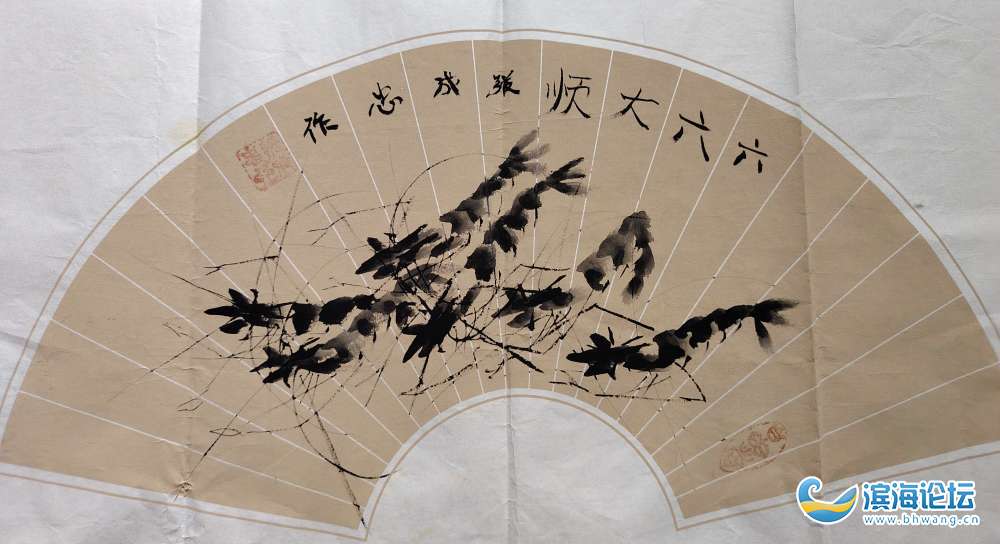 六六大顺 张成忠作
滨海论坛
www.bhwang.cn